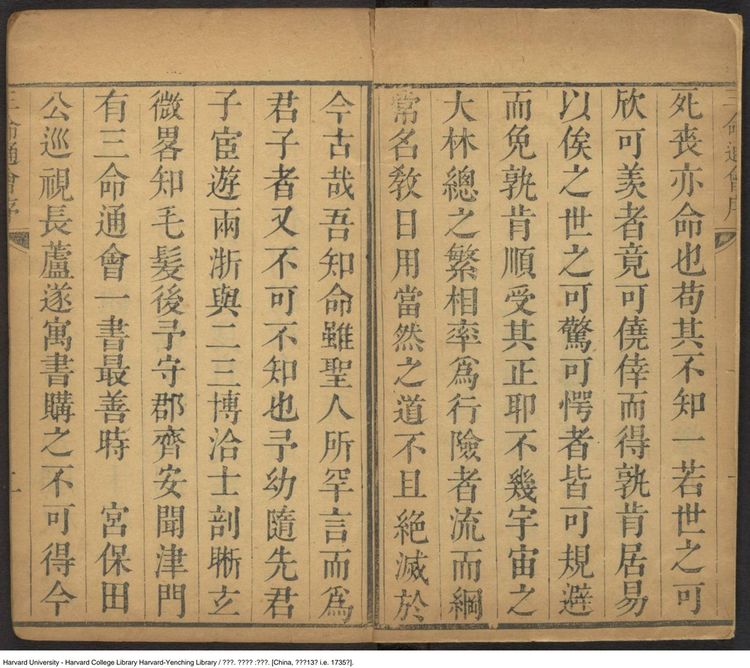 三命通會序
死喪亦命也苟其不知一若世之可
欣可羨者竟可僥倖而得孰肯居易
以俟之世之可驚可愕者皆可規避
而免孰肯順受其正耶不幾宇宙之
大林總之繁相率爲行險者流而綱
常名教日用當然之道不且絕滅於
今古哉吾知命雖聖人所罕言而爲
君子者又不可不知也予幼隨先君
子宦遊兩浙與二三博洽士剖晰玄
微畧知毛髮後予守郡齊安聞津門
有三命通會一書最善時 宮保田
公巡視長蘆遂寓書購之不可得今
三命通會序
二
Harvard University - Harvard College Library Harvard-Yenching Library / ???. ???? :???. [China, ???13? i.e. 1735?].